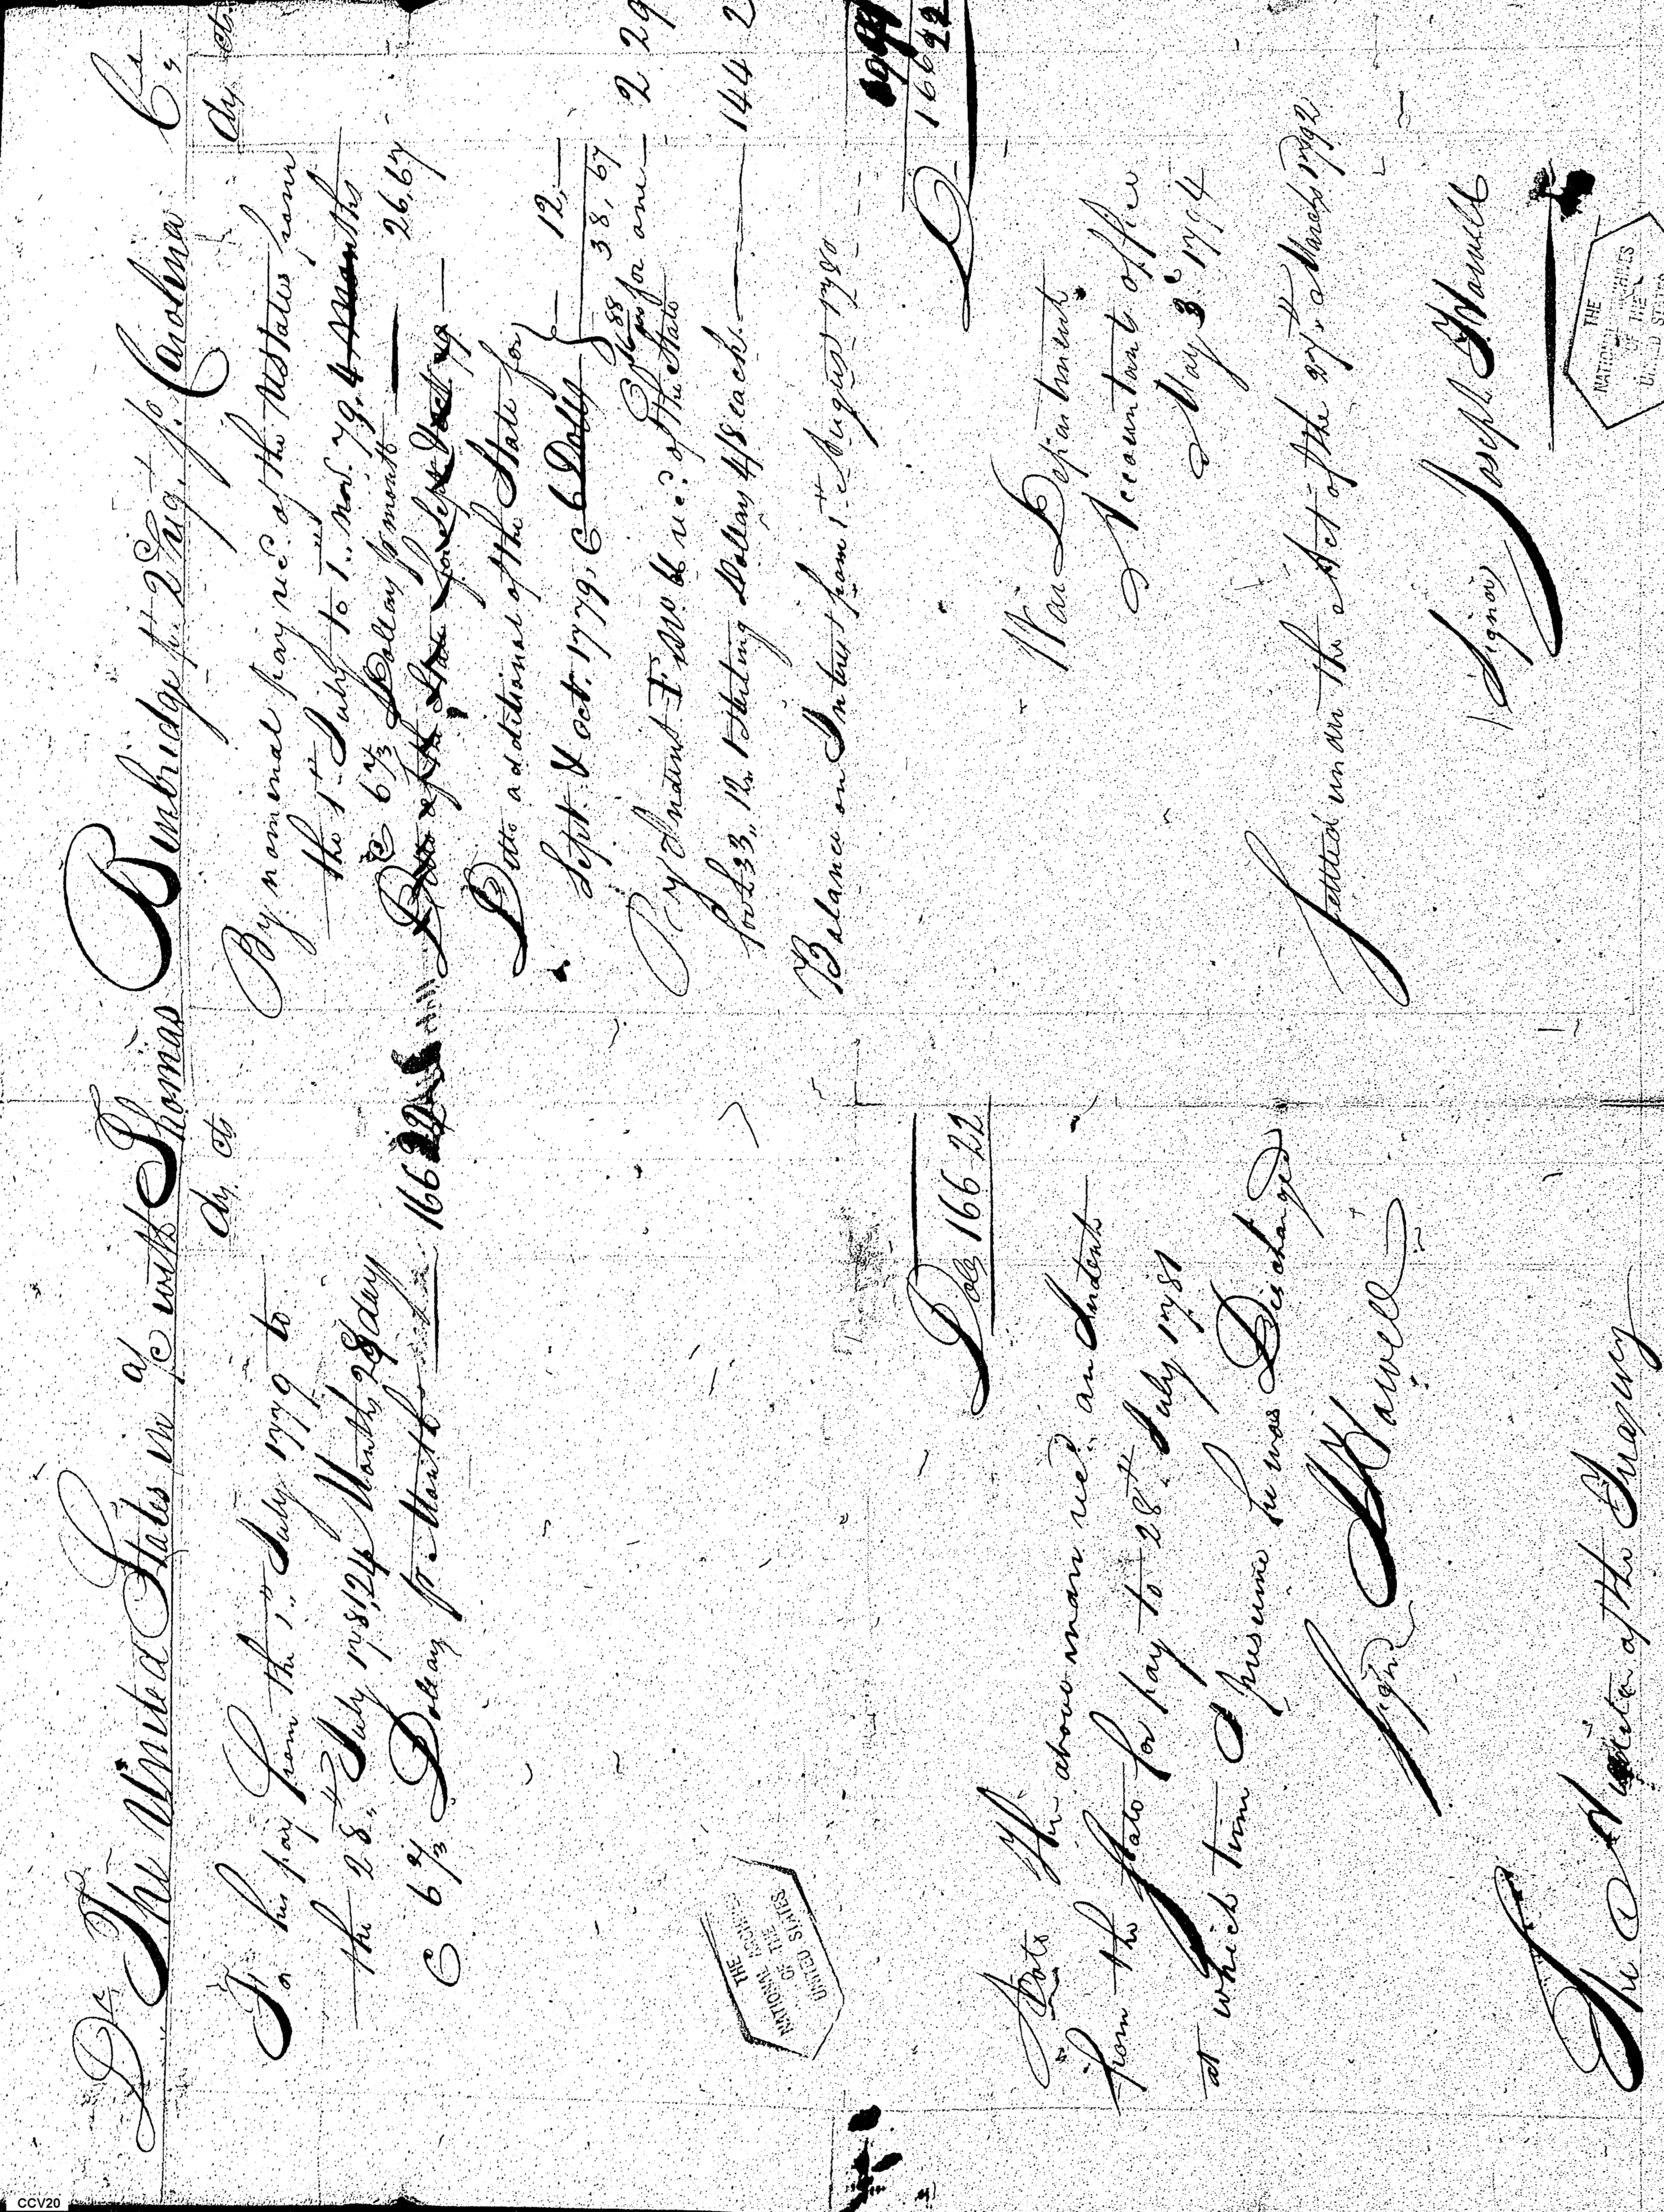 Dr The United States in a/c with Thomas Bumbridge pt. 2d Rgt. No. Carolina Cr.
dr. cts
To his pay from the 1st July 1779 to
the 28th July 1781, 24 Months 28 days
@ 6 2/3 Dollars pr Month 166 22
Dols 166 22
Note The above man recd. an Indents
from the State for pay to 28th July 1781
at which time I presume he was Discharged
Signd J Howell
The Auditor of the Treasury
dr. cts
By nominal pay recd. of the U States from
the 1st July to 1st novr. 79, 4 Months
@ 6 2/3 Dollars pr month 26,67
Ditto of the State for Sept & Oct 79
Ditto additional of the State for
Sept. & Octr. 1779, @ 6 Dolls 12,—
38,67
@ 16 88/100 for one 2 29
By Indent recd. of the State
for £33,,12,,1 Sterling Dollars 4/8 each 144 2
Balance on Interest from 1st August 1780
D 166 22
War Department
Accountants office
May 3d 1794
Settled under the Act of the 27th March 1792
(Signd) Joseph Howell
THE
NATIONAL ARCHIVES
OF THE
UNITED STATES
THE
NATIONAL ARCHIVES
OF THE
UNITED STATES
CCV20